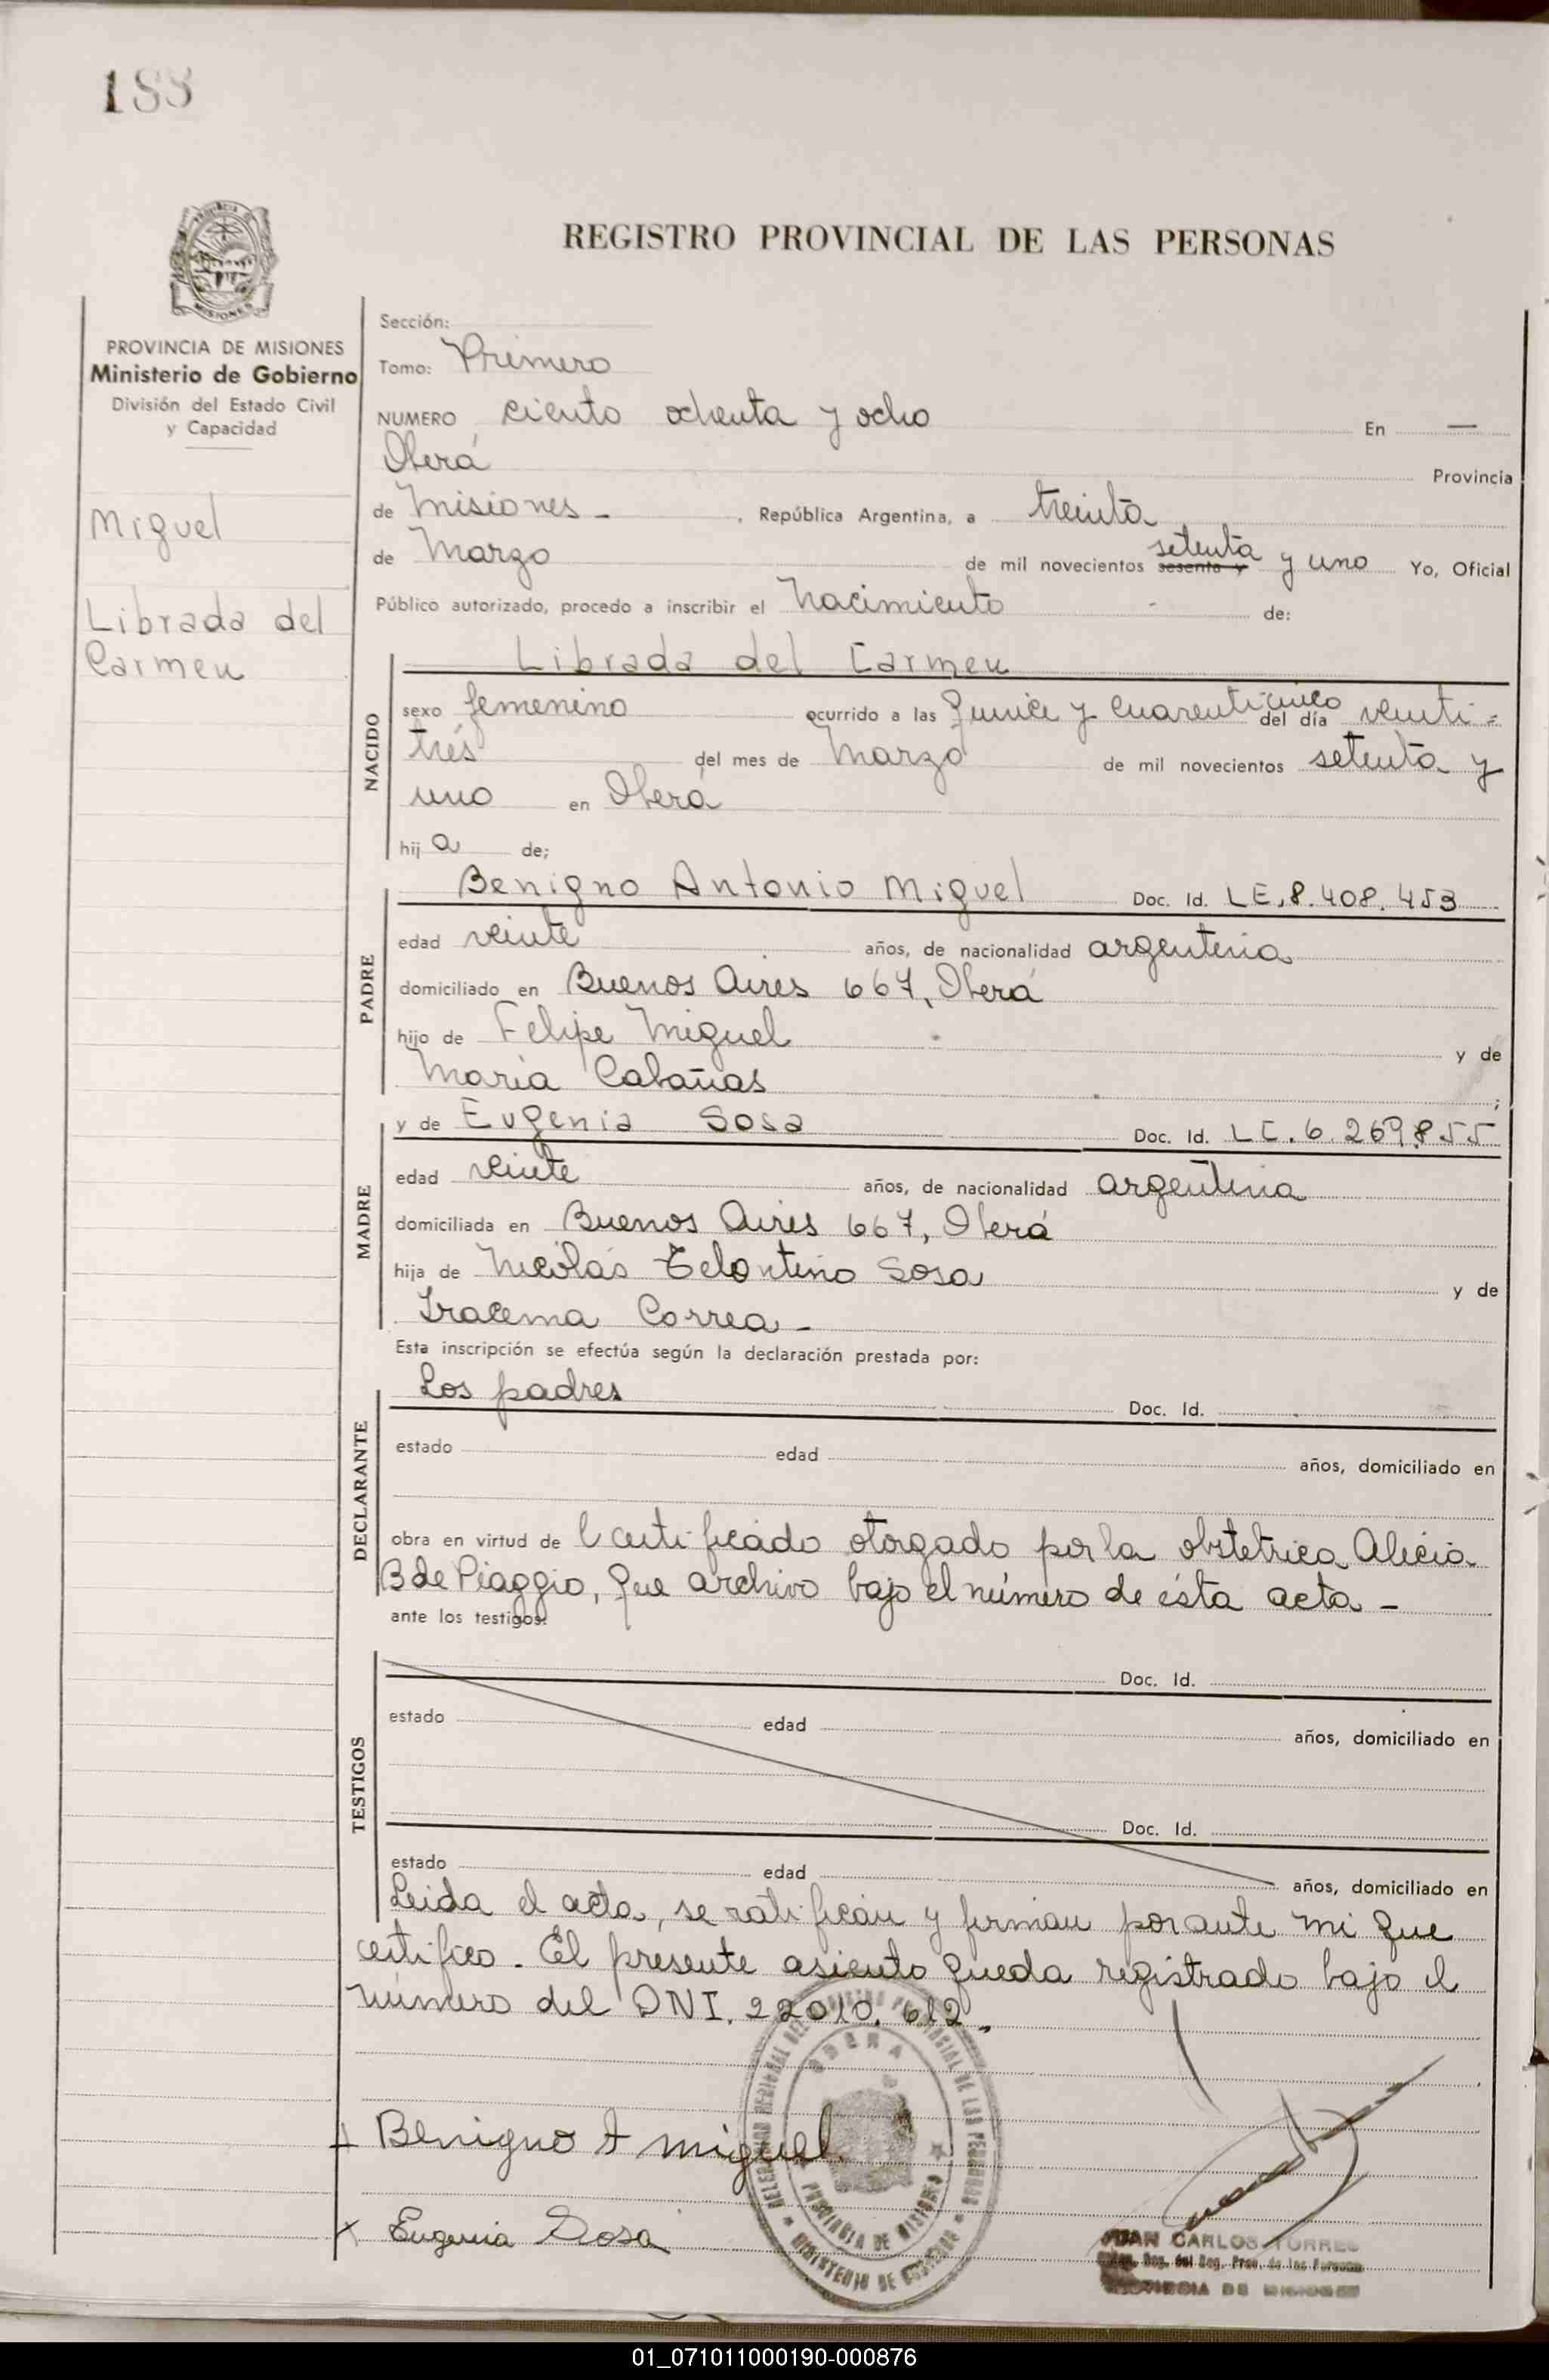 188
PROVINCIA DE MISIONES
Ministerio de Gobierno
División del Estado Civil
y Capacidad
Miguel
Librada del
Carmen
REGISTRO PROVINCIAL DE LAS PERSONAS
Sección:
Tomo: Primero
NUMERO ciento ochenta y ocho En —
Oberá Provincia
de Misiones - , República Argentina, a treinta
de Marzo de mil novecientos sesenta y setenta y uno Yo, Oficial
Público autorizado, procedo a inscribir el Nacimiento de:
NACIDO
Librada del Carmen
sexo femenino ocurrido a las quince y cuarenticinco del día veinti=
trés del mes de Marzo de mil novecientos setenta y
uno en Oberá
hij a de;
PADRE
Benigno Antonio Miguel Doc. Id. LE.8.408.453
edad veinte años, de nacionalidad argentina
domiciliado en Buenos Aires 667, Oberá
hijo de Felipe Miguel y de
Maria Cabañas ;
MADRE
y de Eugenia Sosa Doc. Id. LC.6.269.855
edad veinte años, de nacionalidad argentina
domiciliada en Buenos Aires 667, Oberá
hija de Nicolás Sosa y de
Iracema Correa -
Esta inscripción se efectúa según la declaración prestada por:
DECLARANTE
Los padres Doc. Id.
estado edad años, domiciliado en
obra en virtud de l certificado otorgado por la obstetrica Alicia
B de Piaggio, que archivo bajo el número de ésta acta -
ante los testigos:
TESTIGOS
Doc. Id.
estado edad años, domiciliado en
Doc. Id.
estado edad años, domiciliado en
Leida el acta, se ratifican y firman por ante mi que
certifico. El presente asiento queda registrado bajo el
número del DNI. 22010.612.
Benigno A Miguel
Eugenia Sosa
OBERA
PROVINCIA DE MISIONES
MINISTERIO DE GOBIERNO
JUAN CARLOS TORRES
PROVINCIA DE MISIONES
01_071011000190-000876